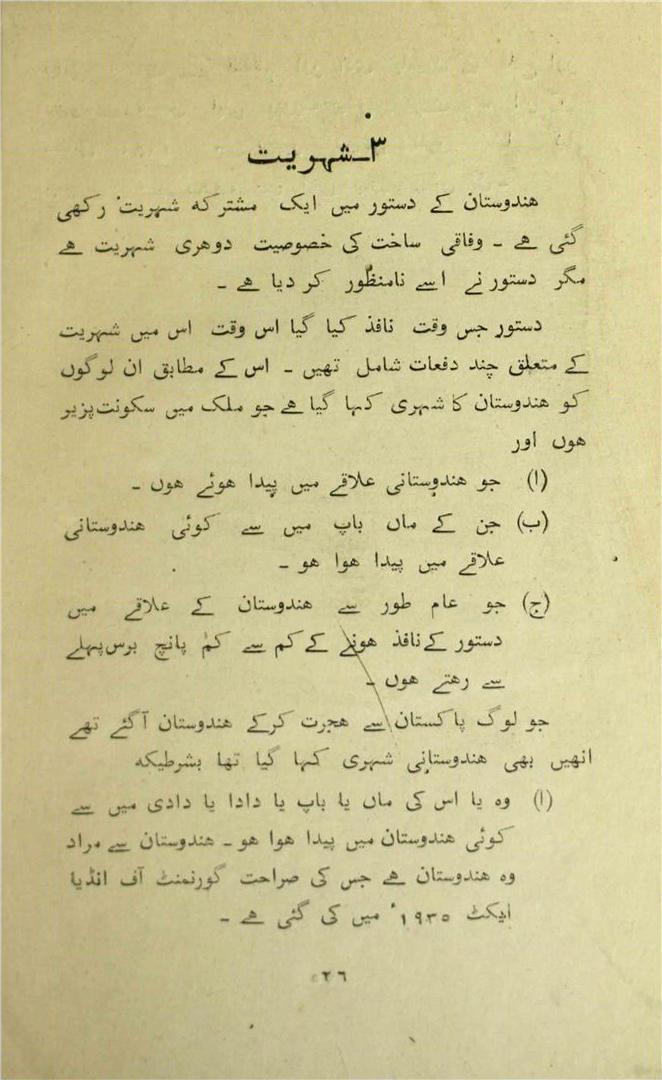 ۳ـ شہریت
ھندوستان کے دستور میں ایک مشترکہ شہریت رکھی
گئی ہے ۔ وفاقی ساخت کی خصوصیت دوھری شہریت ہے
مگر دستور نے اسے نامنظور کر دیا ہے ۔
دستور جس وقت نافذ کیا گیا اس وقت اس میں شہریت
کے متعلق چند دفعات شامل تھیں ۔ اس کے مطابق ان لوگوں
کو ھندوستان کا شہری کہا گیا ہے جو ملک میں سکونت پزیر
ھوں اور
(ا) جو ھندوستانی علاقے میں پیدا ھوئے ھوں ۔
(ب) جن کے ماں باپ میں سے کوئی ھندوستانی
علاقے میں پیدا ھوا ھو ۔
(ج) جو عام طور سے ھندوستان کے علاقے میں
دستور کے نافذ ھونے کے کم سے کم پانچ برس پہلے
سے رھتے ھوں ۔
جو لوگ پاکستان سے ھجرت کرکے ھندوستان آگئے تھے
انھیں بھی ھندوستانی شہری کہا گیا تھا بشرطیکہ
(ا) وہ یا اس کی ماں یا باپ یا دادا یا دادی میں سے
کوئی ھندوستان میں پیدا ھوا ھو ۔ ھندوستان سے مراد
وہ ھندوستان ہے جس کی صراحت گورنمنٹ آف انڈیا
ایکٹ ۱۹۳۵ء میں کی گئی ہے ۔
۲۶